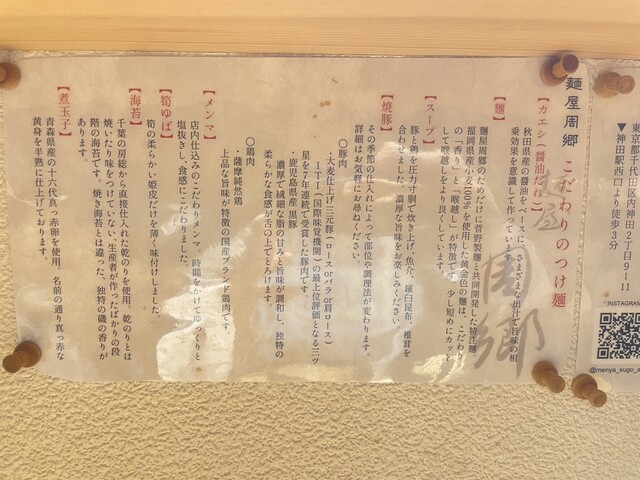 麺屋周郷 こだわりのつけ麺
【カエシ(醤油だれ)】
秋田県産の醤油をベースに、さまざまな出汁で旨味の相
乗効果を意識して作っています。
【麺】
麺屋周郷のためだけに菅野製麺と共同開発した特注麺。
福岡県産小麦100%を使用した黄金色の麺は、こだわり
の「香り」と「喉越し」が特徴です。少し短めにカット
して喉越しをより良くしています。
【スープ】
豚と鶏を圧力寸胴で炊き上げ、魚介、羅臼昆布、椎茸を
合わせました。濃厚な旨味をお楽しみください。
【焼豚】
その季節の仕入れによって部位や調理法が変わります。
詳細はお気軽にお尋ねください。
〇豚肉
・大麦仕上げ三元豚(ロースorバラor肩ロース)
ITI(国際味覚機関)の最上位評価となる三ツ
星を7年連続で受賞した豚肉です。
・鹿児島県産 黒豚
濃厚で繊細な脂の甘みと旨味が調和し、独特の
柔らかな食感が舌の上でとろけます。
〇鶏肉
・薩摩純然鶏
上品な旨味が特徴の国産ブランド鶏肉です。
【メンマ】
店内仕込みのこだわりメンマ。時間をかけてゆっくりと
塩抜きし、食感にこだわりました。
【筍ゆば】
筍の柔らかい姫皮だけを薄く味付けしました。
【海苔】
千葉の房総から直接仕入れた乾のりを使用。乾のりとは
焼いたり味をつけていない、生産者が作ったばかりの段
階の海苔です。焼き海苔とは違った、独特の磯の香りが
あります。
【煮玉子】
青森県産の十六代真っ赤卵を使用。名前の通り真っ赤な
黄身を半熟に仕上げております。
周郷
東京都千代田区内神田2丁目9-11
▼神田駅西口より徒歩3分
INSTAGRAM
@menya_sugo_a